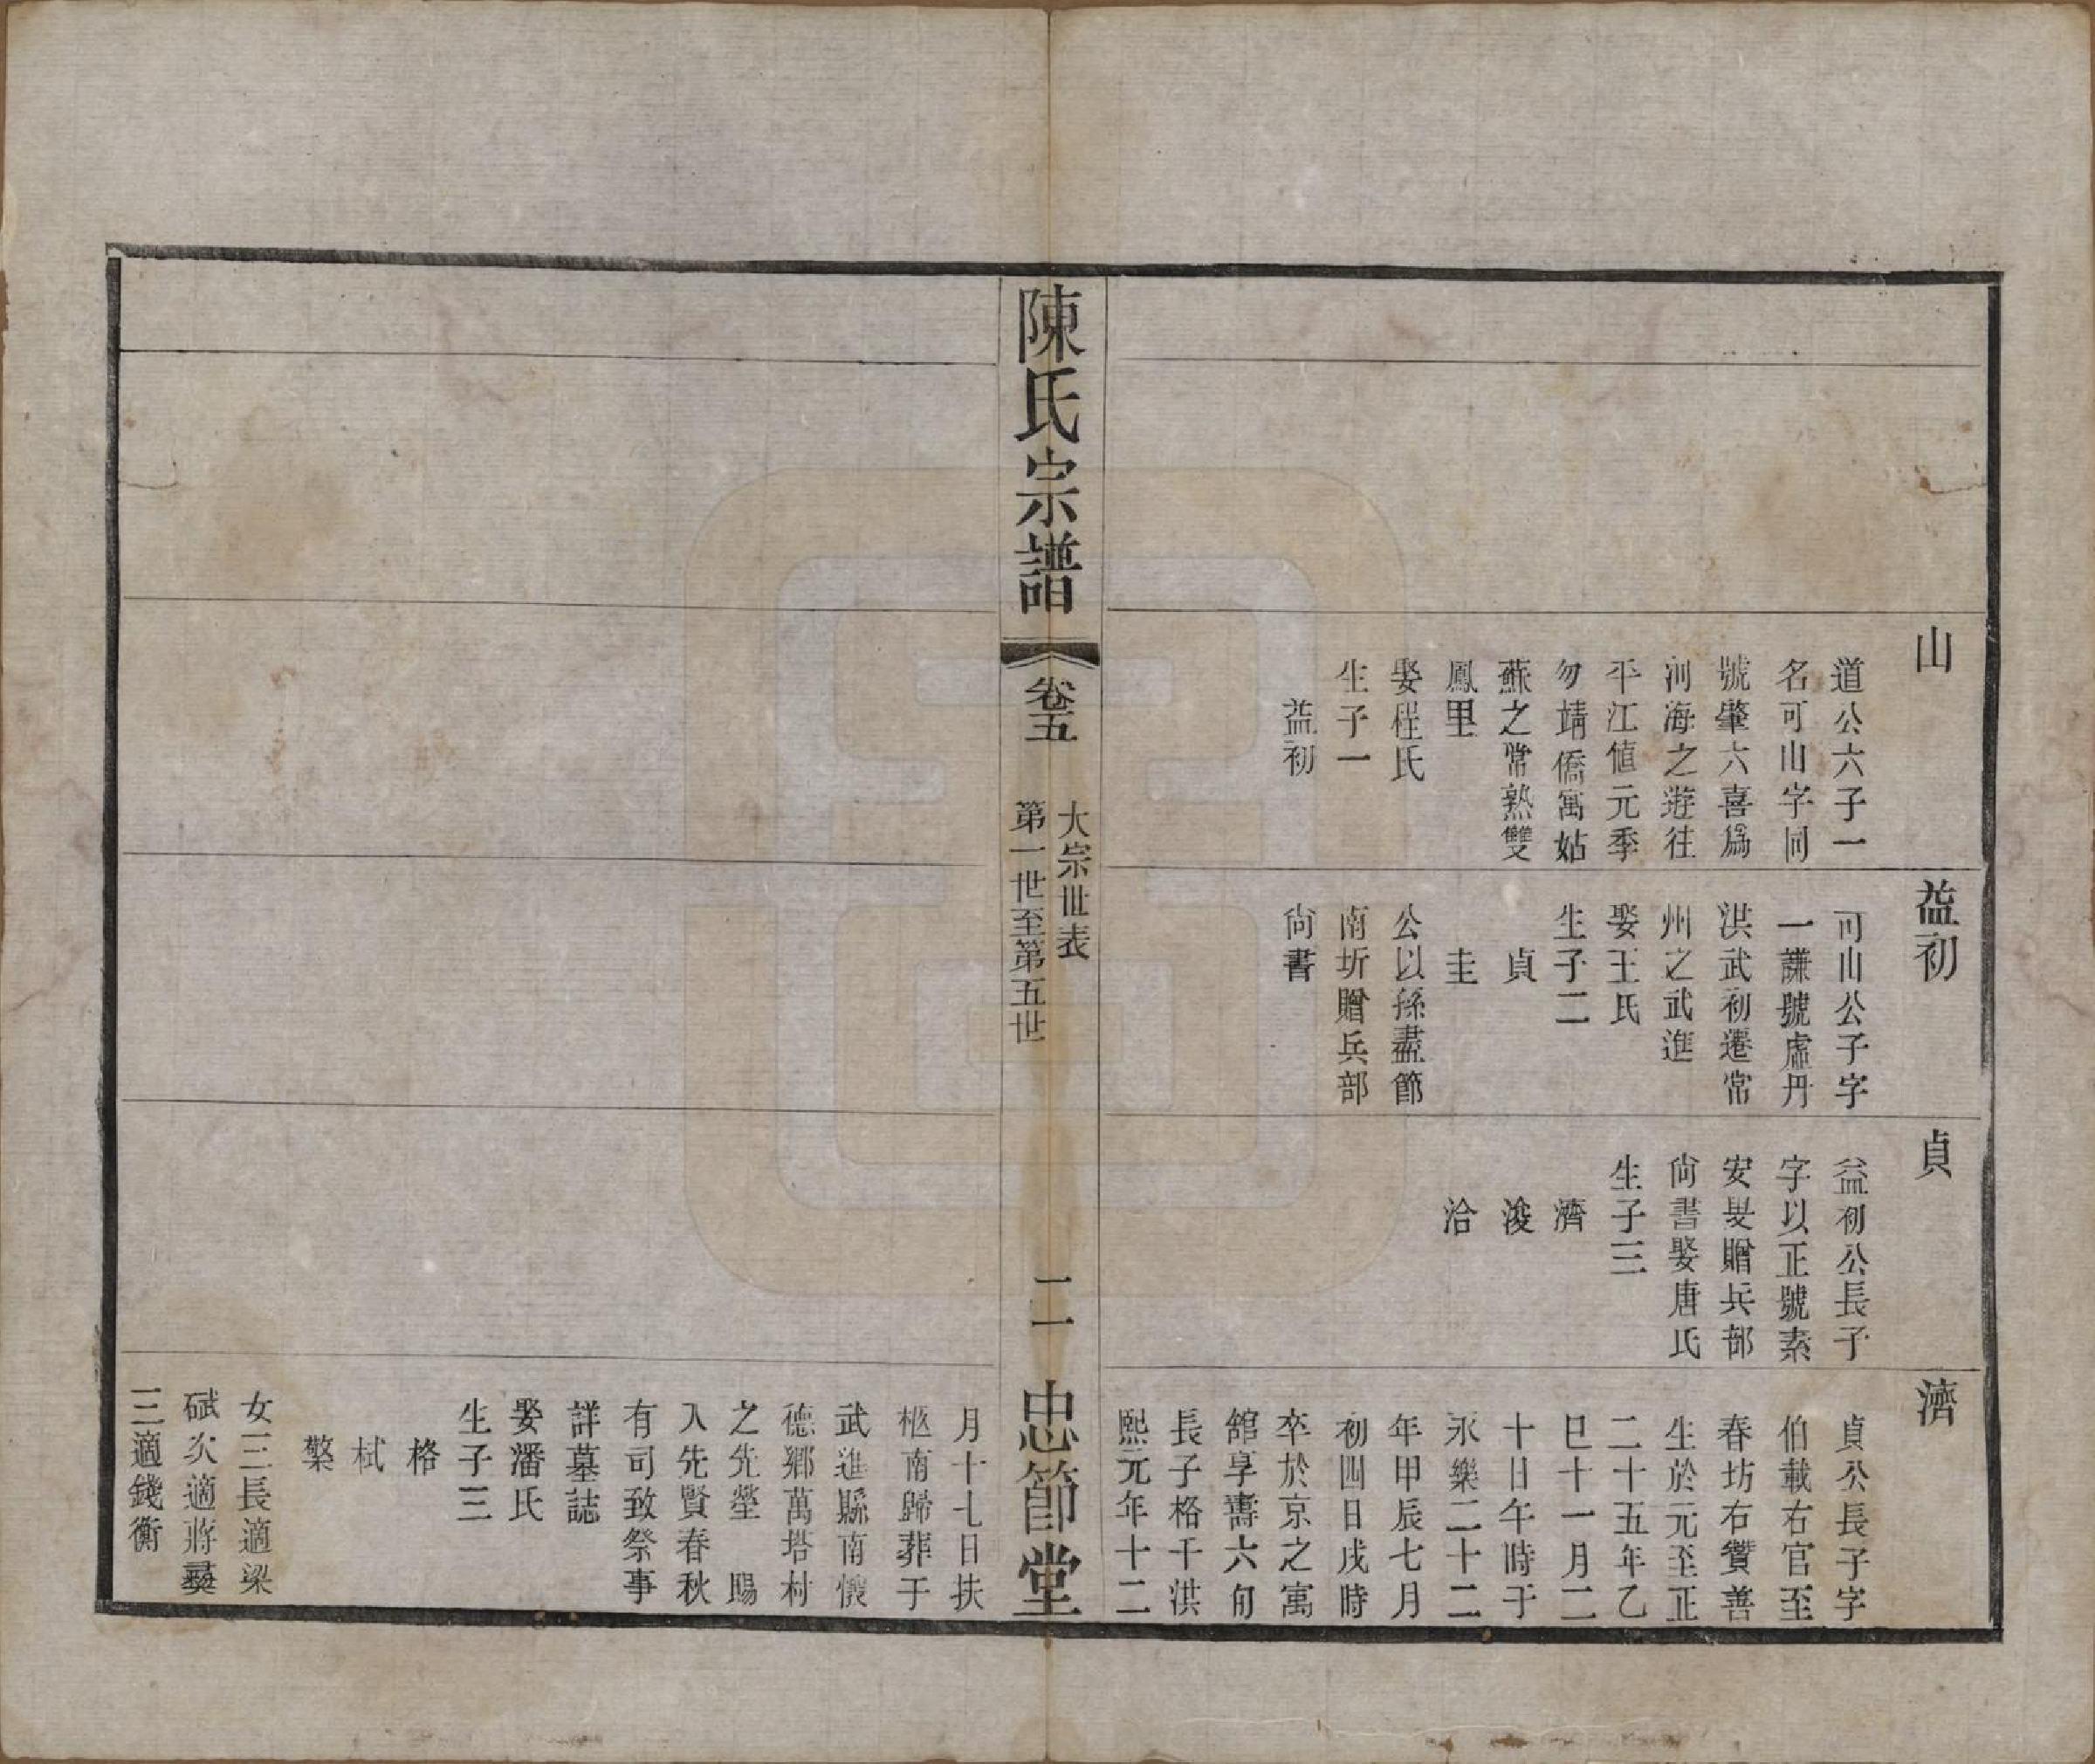 山
道公六子一
名可山字同
號肇六喜爲
河海之遊往
平江値元季
勿靖僑寓姑
蘇之常熟雙
鳳里
娶程氏
生子一
益初
益初
可山公子字
一謙號虛丹
洪武初遷常
州之武進
娶王氏
生子二
貞
圭
公以孫盡節
南圻贈兵部
尙書
貞
益初公長子
字以正號素
安叟贈兵部
尙書娶唐氏
生子三
濟
浚
洽
濟
貞公長子字
伯載右官至
春坊右贊善
生於元至正
二十五年乙
巳十一月二
十日午時于
永樂二十二
年甲辰七月
初四日戌時
卒於京之寓
舘享壽六旬
長子格于洪
熙元年十二
陳氏宗譜
卷五
大宗世表
第一世至第五世
二
忠節堂
月十七日扶
柩南歸葬于
武進縣南懷
德鄉萬塔村
之先塋 賜
入先賢春秋
有司致祭事
詳墓誌
娶潘氏
生子三
格
栻
檠
女三長適梁
碔次適蔣彞
三適錢衡